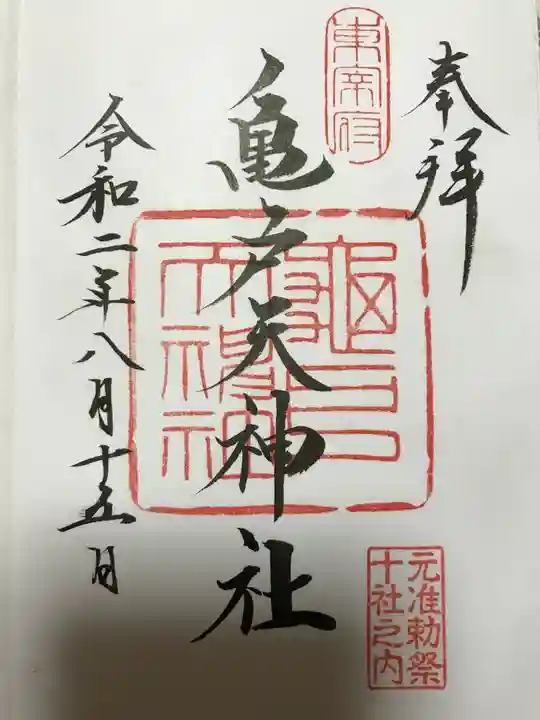 奉拝
東宰府
亀戸天神社
元准勅祭
十社之内
令和二年八月十五日